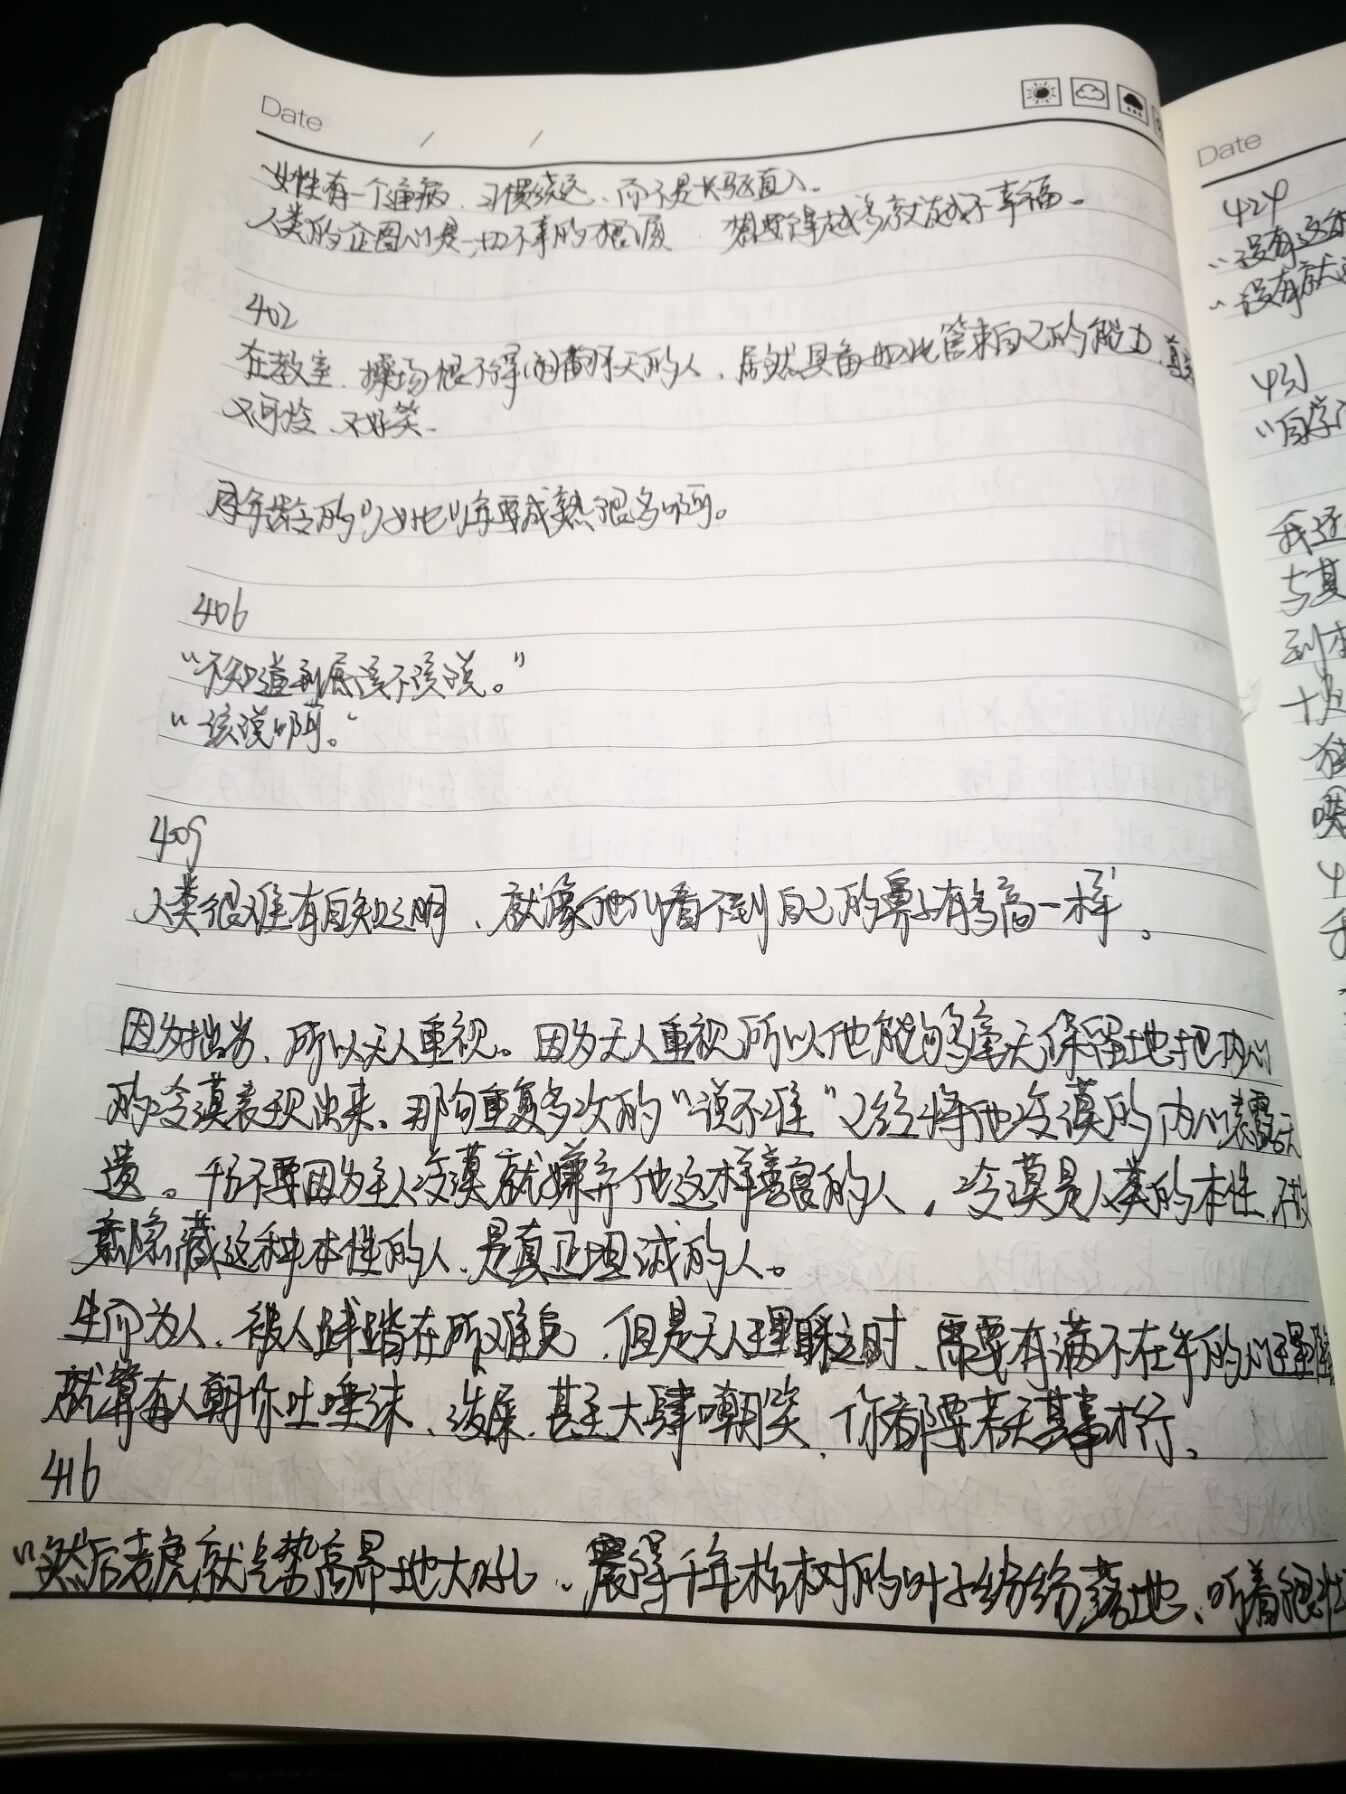 Date / /
女性有一个通病、习惯绕远、而不是长驱直入。
人类的企图心是一切不幸的根源 想要得越多就活越不幸福。
402
在教室、操场恨不得闹翻天的人、居然具备如此管束自己的能力、真
不可笑、不好笑。
同年龄的人她年要成熟很多啊。
406
“不知道到底该不该说。”
“该说啊。”
409
人类很难有自知之明、就像他们看不到自己的鼻子有多高一样。
因为拙劣、所以无人重视。因为无人重视所以他能够毫无保留地把内心
的冷漠表现出来、那句重复多次的“说不准”已经将他冷漠的内心表露无
遗。千万不要因为主人冷漠就嫌弃他这样善良的人，冷漠是人类的本性、不故
意隐藏这种本性的人、是真正坦诚的人。
生而为人、被人踩踏在所难免、但是无人理睬之时、需要有满不在乎的心理
就算有人朝你吐唾沫、泼屎、甚至大肆嘲笑、你都要若无其事才行、
416
“然后老虎就气势高昂地大吼、震得千年松树的叶子纷纷落地、听着很壮
Date
424
“没有这
“没有就
431
“自学
我还
与其
到